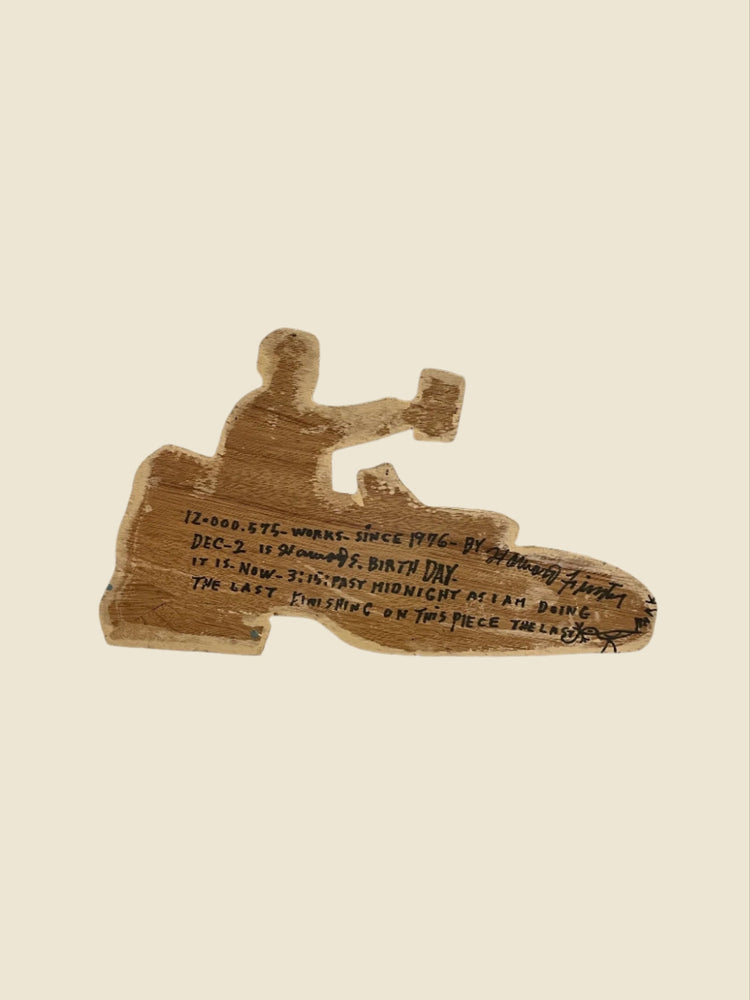 12.000.575- WORKS- SINCE 1976- BY Howard Finster
DEC-2 IS Howards. BIRTH DAY.
IT IS. NOW- 3:15: PAST MIDNIGHT AS I AM DOING
THE LAST FINISHING ON THIS PIECE THE LAST